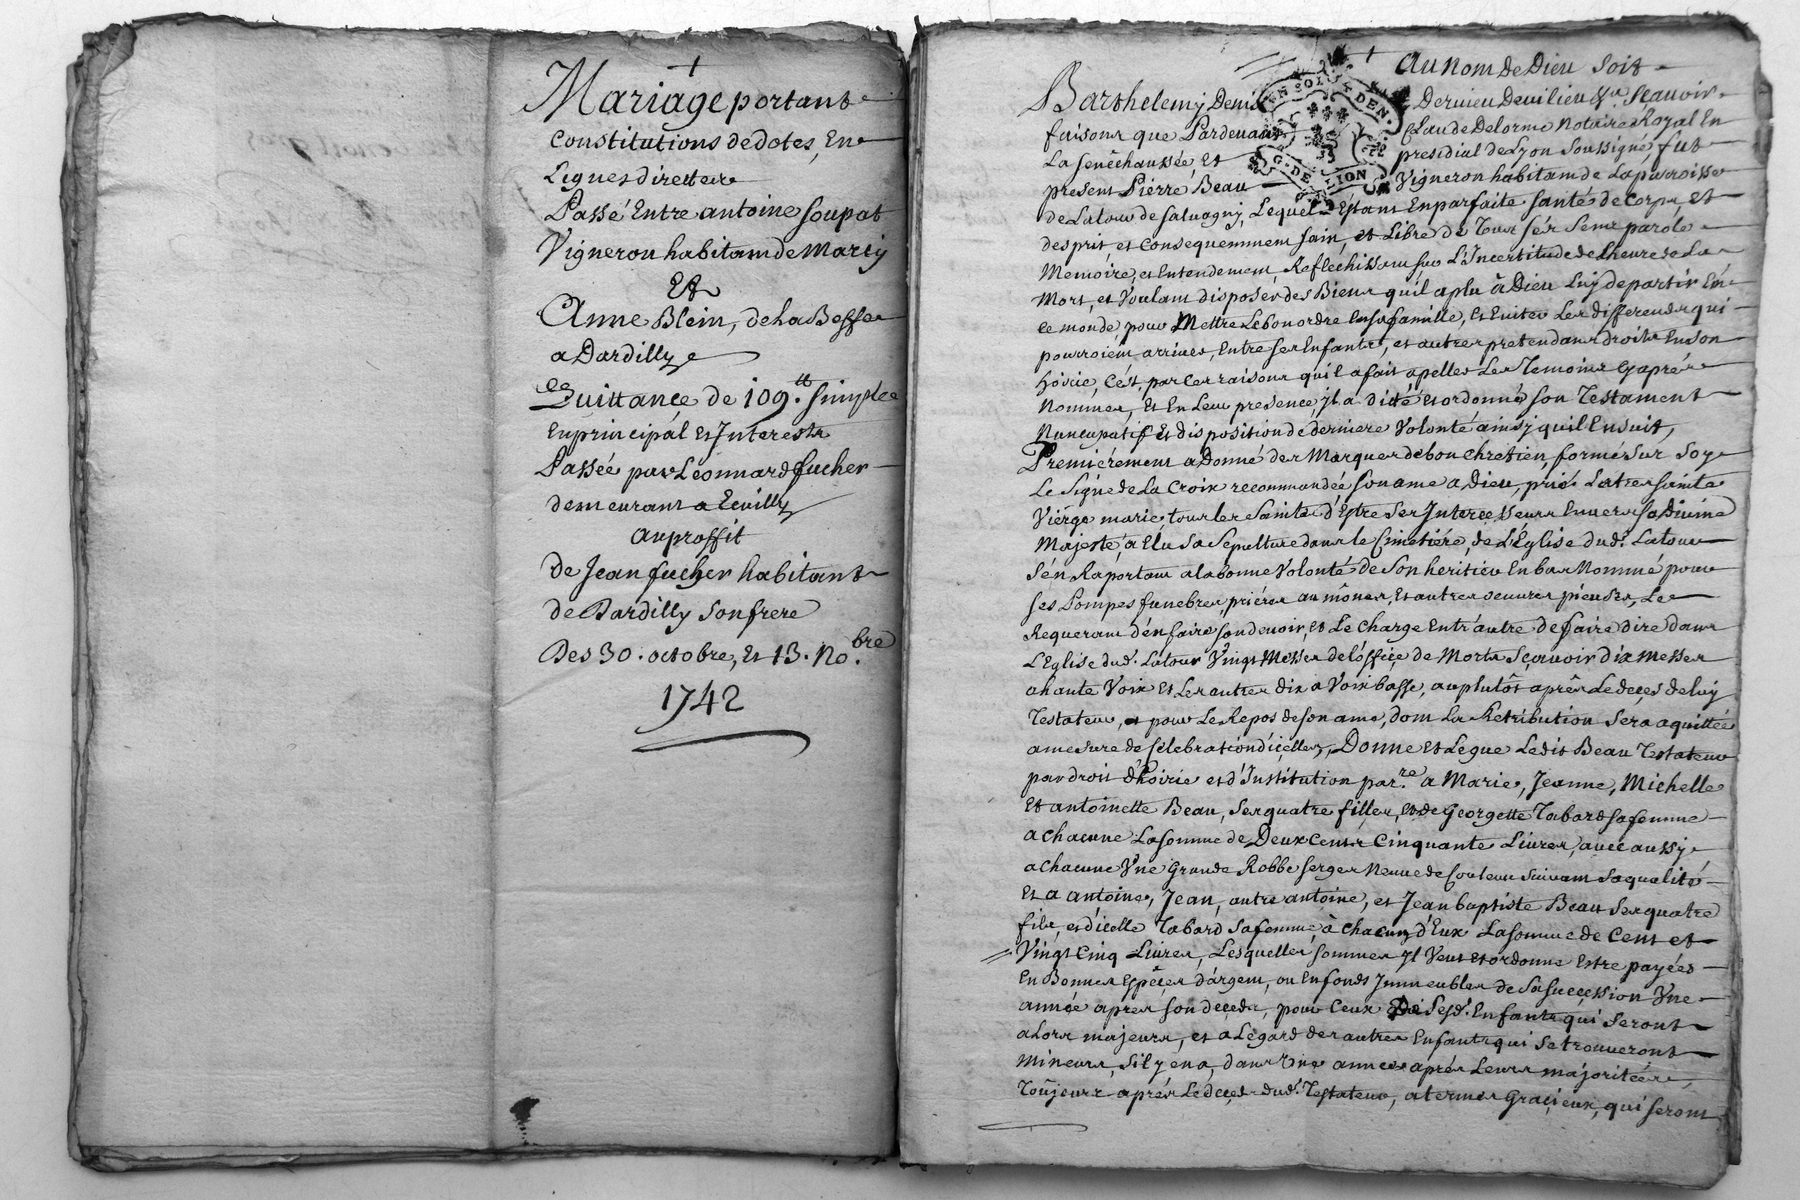 Mariage portant
Constitutions de dotes, En
Lignes directe
Passé Entre antoine soupat
Vigneron habitant de Marcy
Et
Anne Blein, de La Besse
a Dardilly
Quittance de 109.tt simple
En principal Et Interests
Passée par Léonnard fucher
demeurant a
au proffit
de Jean fucher habitant
de Dardilly son frere
Des 30. octobre, Et 13. No.bre
1742
Au nom de Dieu soit
Barthelemy Denis Dervieu Sçavoir
faisons que Pardevant Claude Delorme Notaire Royal En
La senéchaussée, Et presidial de Lyon soussigné, fut
present Pierre Beau Vigneron habitant de La parroisse
de Latour de salvagny, Lequel Estant En parfaite santé de Corps, et
desprit, et Consequemment sain, et Libre de Tous sés sens parole
Memoire, et Entendement, Refléchissant sur L'Incertitude de Lheure de La
Mort, et Voulant disposér des Biens qu'il a plu à Dieu Luy departir En
ce monde pour Mettre Le bon ordre En sa famille, Et Eviter Les differends qui
pourroient arriver, Entre ses Enfants, et autres pretendans droits En son
hoirie, C'ést par ces raisons qu'il a fait apeller Les Temoins Cy aprés
Nommés, Et En Leur presence, Il a dicté et ordonné son Testament
Nuncupatif Et disposition de derniere Volonté ainsy quil Ensuit,
Premiérement a Donné des Marques de bon chretien, formé sur soy
Le Signe de La Croix recommandée son ame a Dieu, prié La tres sainte
Viérge marie, tous les Saints d'Estre ses Intercesseurs Envers sa Divine
Majesté, a Elu sa Sepulture dans le Cimetiére, de L'Eglise dud.t Latour
s'én Raportant a la bonne Volonté de son heritier En bas Nommé pour
ses Pompes funebres, priéres aumônes, Et autres oeuvres pieuses, Le
Requerant d'én faire son devoir, et Le Charge Entr'autre de faire dire dans
L'Eglise dud.t Latour Vingt Messes de l'office de Morts Sçavoir dix messes
a haute Voix et Les autres dix a Voix basse, au plutôt aprés Le deces de luy
Testateur, et pour Le Repos de son ame, dont La Retribution sera aquittée
a mesure de célébration d'icelles, Donne et Legue Ledit Beau Testateur
par droit d'hoirie et d'Institution par.re a Marie, Jeanne, Michelle
Et antoinette Beau, ses quatre filles, Et de Georgette Tabard sa femme
a Chacune La somme de Deux Cents Cinquante Livres, avec aussy
a Chacune Une Grande Robbe serge Neuve de Couleur suivant sa qualité
Et a antoine, Jean, autre antoine, et Jean baptiste Beau Ses quatre
fils, et d'icelle Tabard sa femme, à Chacun d'Eux La somme de Cent et
Vingt Cinq Livres, Lesquelles sommes Il Veut et ordonne Estre payées
En Bonnes Espéces d'argent, ou En fonds Immeubles de sa succession Une
année apres son deceds, pour Ceux De Sesd.t Enfants qui seront
a Lors majeurs, et a Légard des autres Enfants qui se trouveront
Mineurs, s'il y en a, dans Une année aprés Leurs majoritées,
Toûjours aprés Le deces dud.t Testateur, a termes Gracieux, qui seront